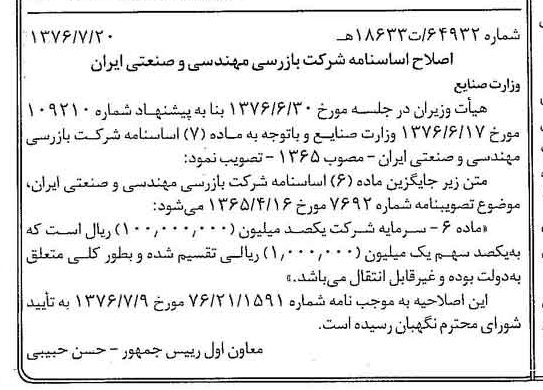 شماره ۶۴۹۳۲/ت۱۸۶۳۳هـ ۱۳۷۶/۷/۲۰
اصلاح اساسنامه شرکت بازرسی مهندسی و صنعتی ایران
وزارت صنایع
هیأت وزیران در جلسه مورخ ۱۳۷۶/۶/۳۰ بنا به پیشنهاد شماره ۱۰۹۲۱۰
مورخ ۱۳۷۶/۶/۱۷ وزارت صنایع و باتوجه به ماده (۷) اساسنامه شرکت بازرسی
مهندسی و صنعتی ایران – مصوب ۱۳۶۵ – تصویب نمود:
متن زیر جایگزین ماده (۶) اساسنامه شرکت بازرسی مهندسی و صنعتی ایران،
موضوع تصویبنامه شماره ۷۶۹۲ مورخ ۱۳۶۵/۴/۱۶ می‌شود:
«ماده ۶ – سرمایه شرکت یکصد میلیون (۱۰۰,۰۰۰,۰۰۰) ریال است که
به‌یکصد سهم یک میلیون (۱,۰۰۰,۰۰۰) ریالی تقسیم شده و بطور کلی متعلق
به‌دولت بوده و غیرقابل انتقال می‌باشد.»
این اصلاحیه به موجب نامه شماره ۷۶/۲۱/۱۵۹۱ مورخ ۱۳۷۶/۷/۹ به تأیید
شورای محترم نگهبان رسیده است.
معاون اول رییس جمهور – حسن حبیبی